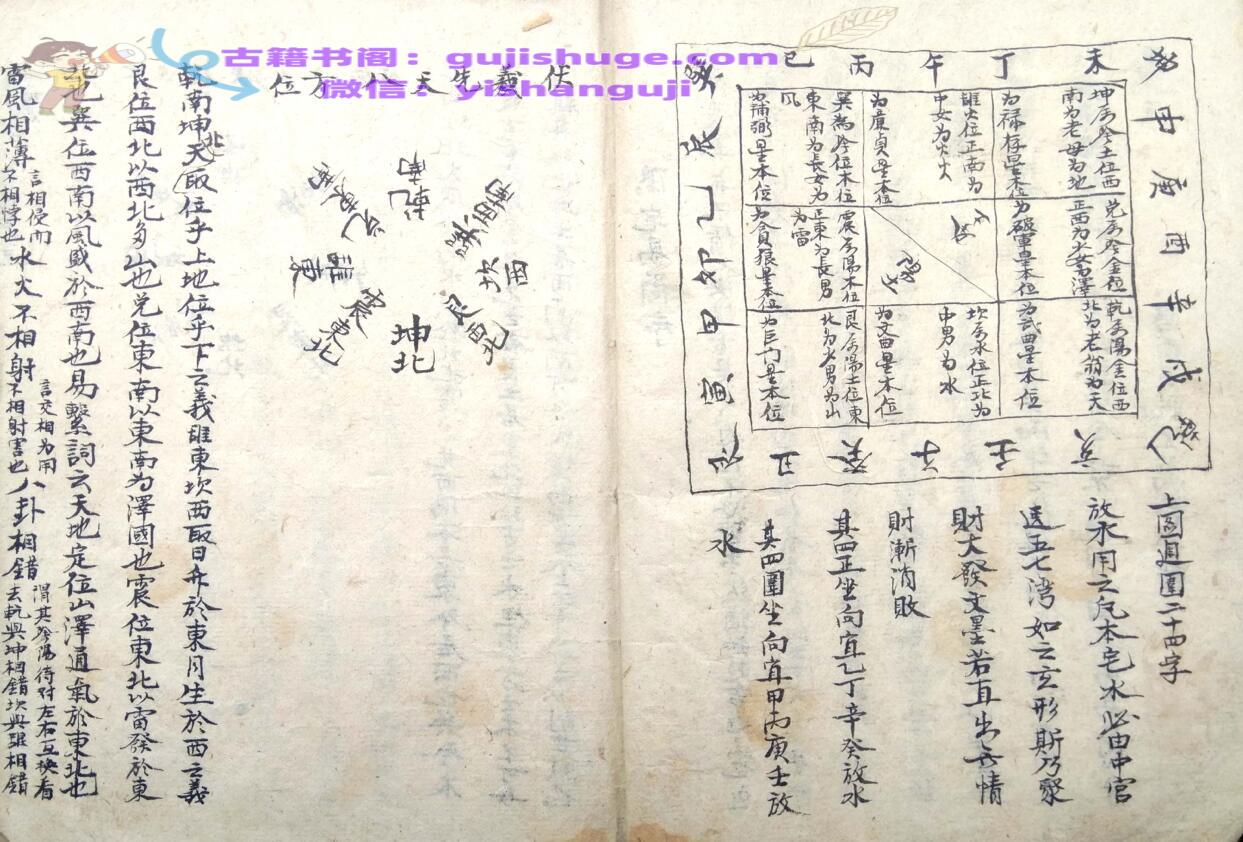 巽巳丙午丁未坤
申庚酉辛戌
乾亥壬子癸丑艮
寅甲卯乙辰
坤為陰土位西
南為老母為地
為禄存星本位
離火位正南為
中女為火
為廉貞星本位
巽為陰位木位
東南為長女為
風
為輔弼星本位
兌為陰金位
正西為少女為澤
為破軍星本位
陰
陽
震為陽木位
正東為長男
為雷
為貪狼星本位
乾為陽金位西
北為老翁為天
為武曲星本位
坎為水位正北為
中男為水
為文曲星本位
艮為陽土位東
北為少男為山
為巨門星本位
上圖週圍二十四字
放水用之凡本宅水必由中宫
透五七湾如之玄形斯乃聚
財大發文墨若直出無情
財漸消敗
其四正坐向宜乙丁辛癸放水
其四圍坐向宜甲丙庚壬放
水
古籍书阁：gujishuge.com
微信：yishanguji
伏羲先天八卦方位
乾南
兌東南
離東
震東北
巽西南
坎西
艮西北
坤北
乾南坤北天取位乎上地位乎下之義離東坎西取日升於東月生於西之義
艮位西北以西北多山也兌位東南以東南為澤國也震位東北以雷發於東
北也巽位西南以風盛於西南也易繫詞云天地定位山澤通氣於東北也
雷風相薄言相侵而不相悖也水火不相射言交相為用不相射害也八卦相錯謂其陰陽待對左右互换看去乾與坤相錯坎與離相錯